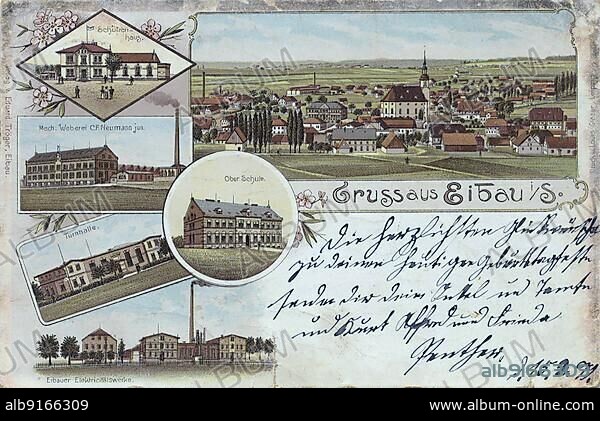 Schützen-
haus.
Mech. Weberei C.F. Neumann jun.
Ober Schule.
Turnhalle.
Eibauer Elektricitätswerke.
Eduard Tröger, Eibau.
Gruss aus Eibau i/S.
Die herzlichsten Glückwünsche
zu deinem heutigen Geburtstagsfeste
senden dir dein Onkel und Tante
und Kurt Alfred und Frieda
Penther
ALBUM
alb9166309
alb9166309
www.album-online.com